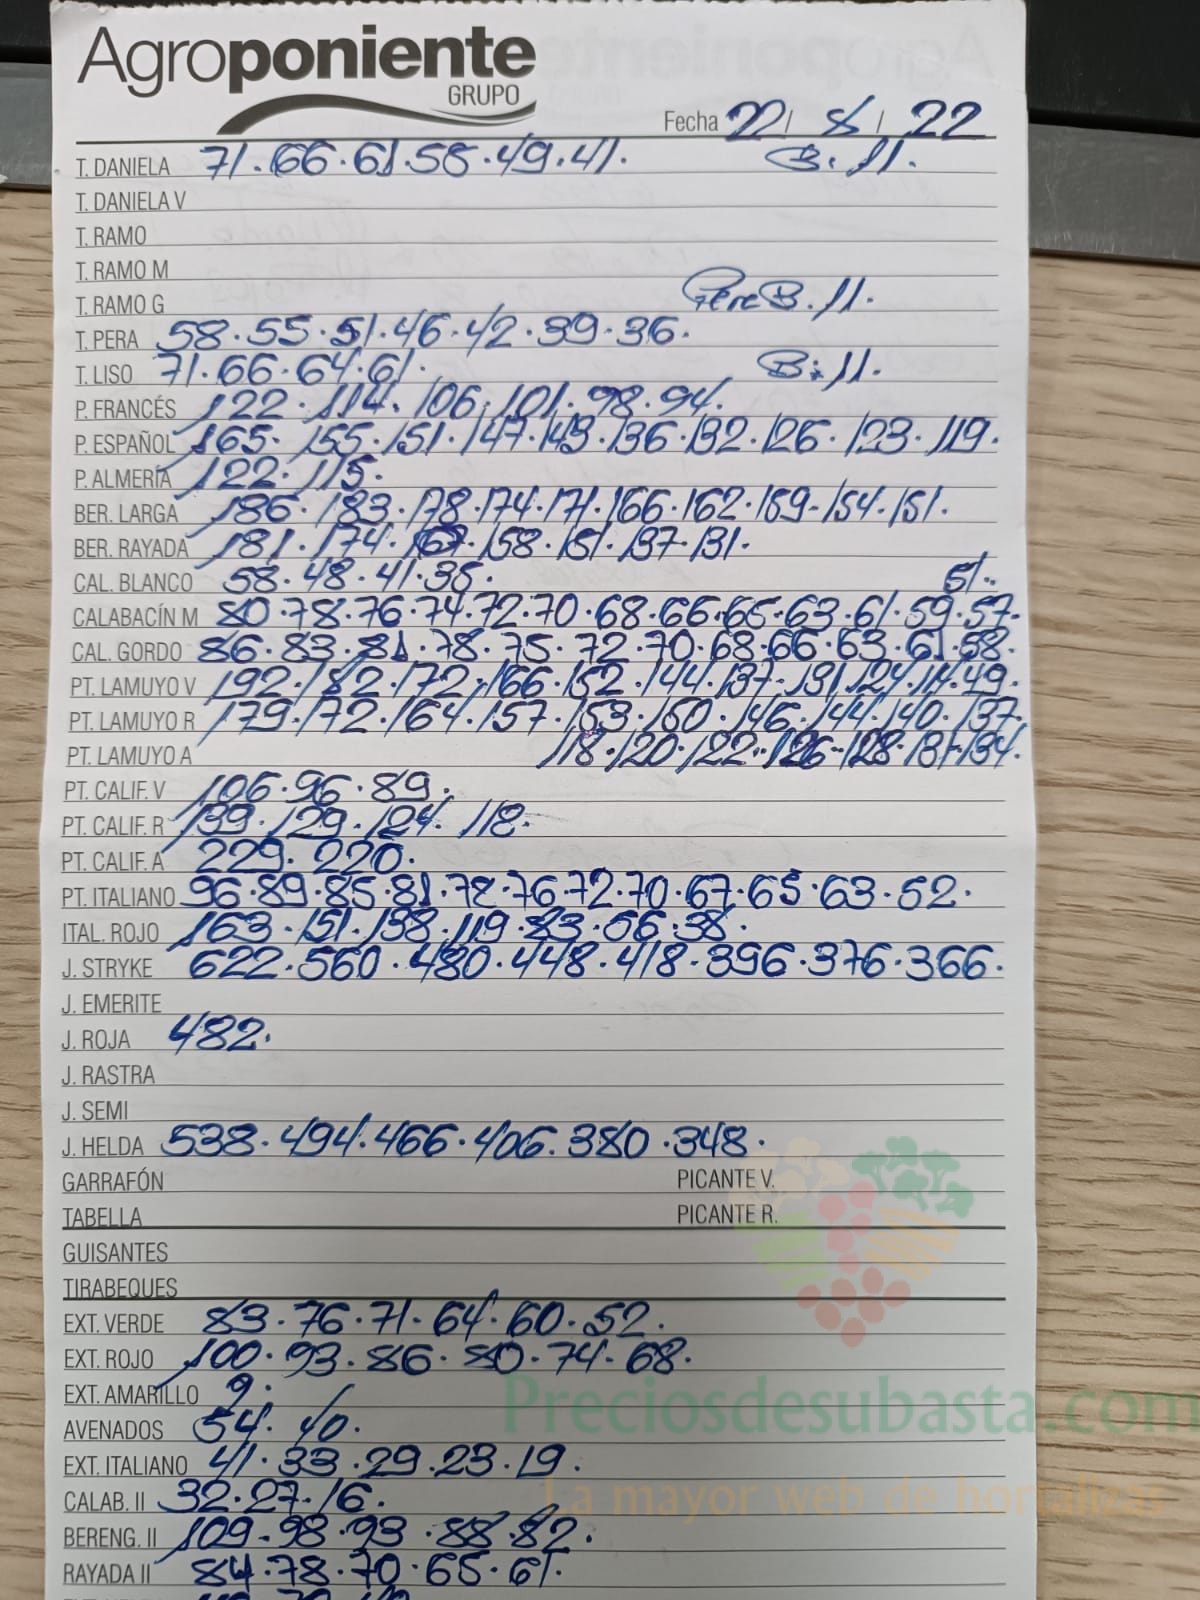 Agroponiente
GRUPO
Fecha 22 / 8 / 22
T. DANELA 71.66.61.58.49.41. B. 11.
T. DANIELA V
T. RAMO
T. RAMO M
T. RAMO G Pera B. 11.
T. PERA 58.55.51.46.42.39.36.
T. LISO 71.66.64.61. B: 11.
P. FRANCÉS 122.114.106.101.98.94.
P. ESPAÑOL 165.155.151.147.143.136.132.126.123.119.
P. ALMERÍA 122.115.
BER. LARGA 186.183.178.174.171.166.162.159.154.151.
BER. RAYADA 181.174.167.158.151.137.131.
CAL. BLANCO 58.48.41.35. 51.
CALABACÍN M 80.78.76.74.72.70.68.66.65.63.61.59.57.
CAL. GORDO 86.83.81.78.75.72.70.68.66.63.61.58.
PT. LAMUYO V 192.182.172.166.152.144.137.131.124.114.49.
PT. LAMUYO R 179.172.164.157.153.150.146.144.140.137.
PT. LAMUYO A 118.120.122.126.128.131.134.
PT. CALIF. V 106.96.89.
PT. CALIF. R 139.129.124.118.
PT. CALIF. A 229.220.
PT. ITALIANO 96.89.85.81.78.76.72.70.67.65.63.52.
ITAL. ROJO 163.151.138.119.83.56.38.
J. STRYKE 622.560.480.448.418.396.376.366.
J. EMERITE
J. ROJA 482.
J. RASTRA
J. SEMI
J. HELDA 538.494.466.406.380.348.
GARRAFÓN PICANTE V.
TABELLA PICANTE R.
GUISANTES
TIRABEQUES
EXT. VERDE 83.76.71.64.60.52.
EXT. ROJO 100.93.86.80.74.68.
EXT. AMARILLO 9.
AVENADOS 54.40.
Preciosdesubasta.com
EXT. ITALIANO 41.33.29.23.19.
CALAB. II 32.27.16.
La mayor web de hortalizas
BERENG. II 109.98.93.88.82.
RAYADA II 84.78.70.65.61.